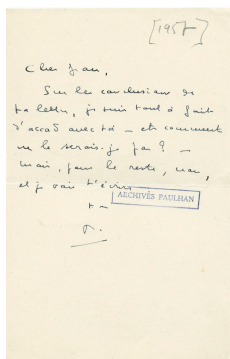 [1957]
Cher Jean,
Sur les conclusions de
ta lettre, je suis tout à fait
d'accord avec toi — et comment
ne le serais-je pas ? —
mais, pour le reste, non,
et je vais t'écrire
ARCHIVES PAULHAN